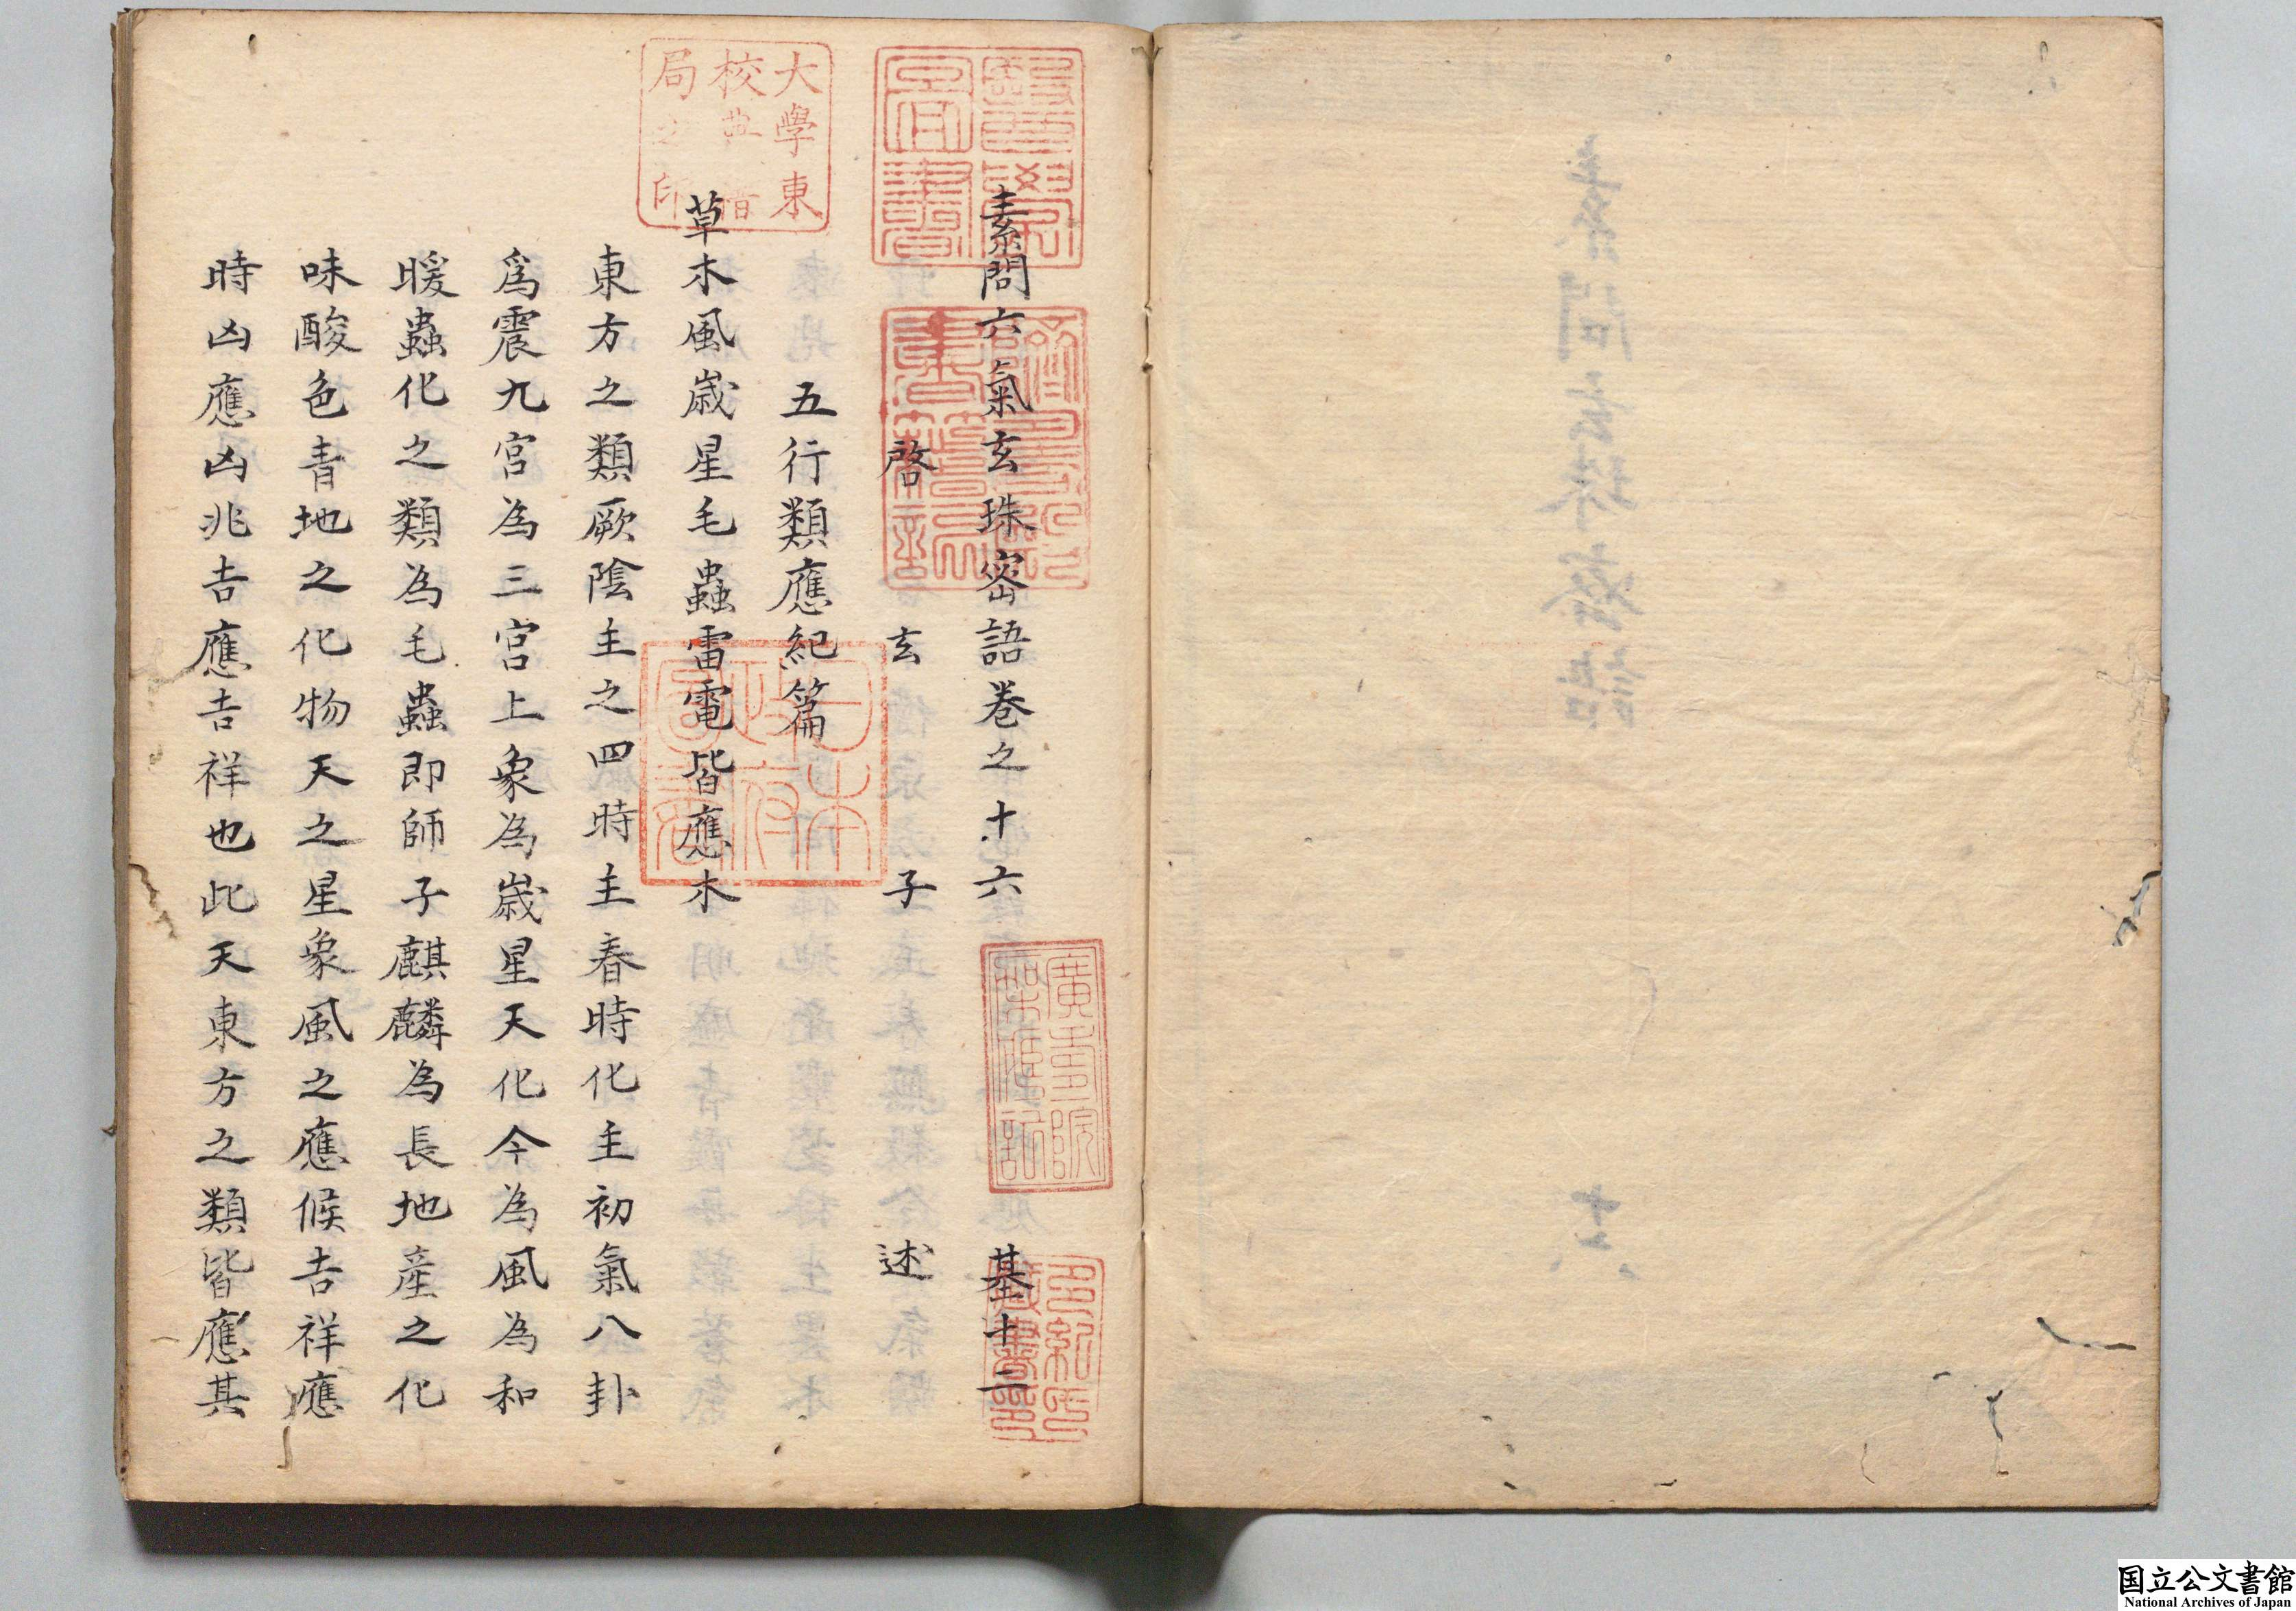 素問六氣玄珠密語卷之十六 基十二
啓玄子述
五行類應紀篇
草木風歲星毛蟲雷電皆應木
東方之類厥陰主之四時主春時化主初氣八卦
爲震九宮為三宮上象為歲星天化今為風為和
暖蟲化之類為毛蟲即師子麒麟為長地產之化
味酸色青地之化物天之星象風之應候吉祥應
時凶應凶兆吉應吉祥也此天東方之類皆應其
大學東
校典籍
局之印
日本
政府
圖書
国立公文書館
National Archives of Japan